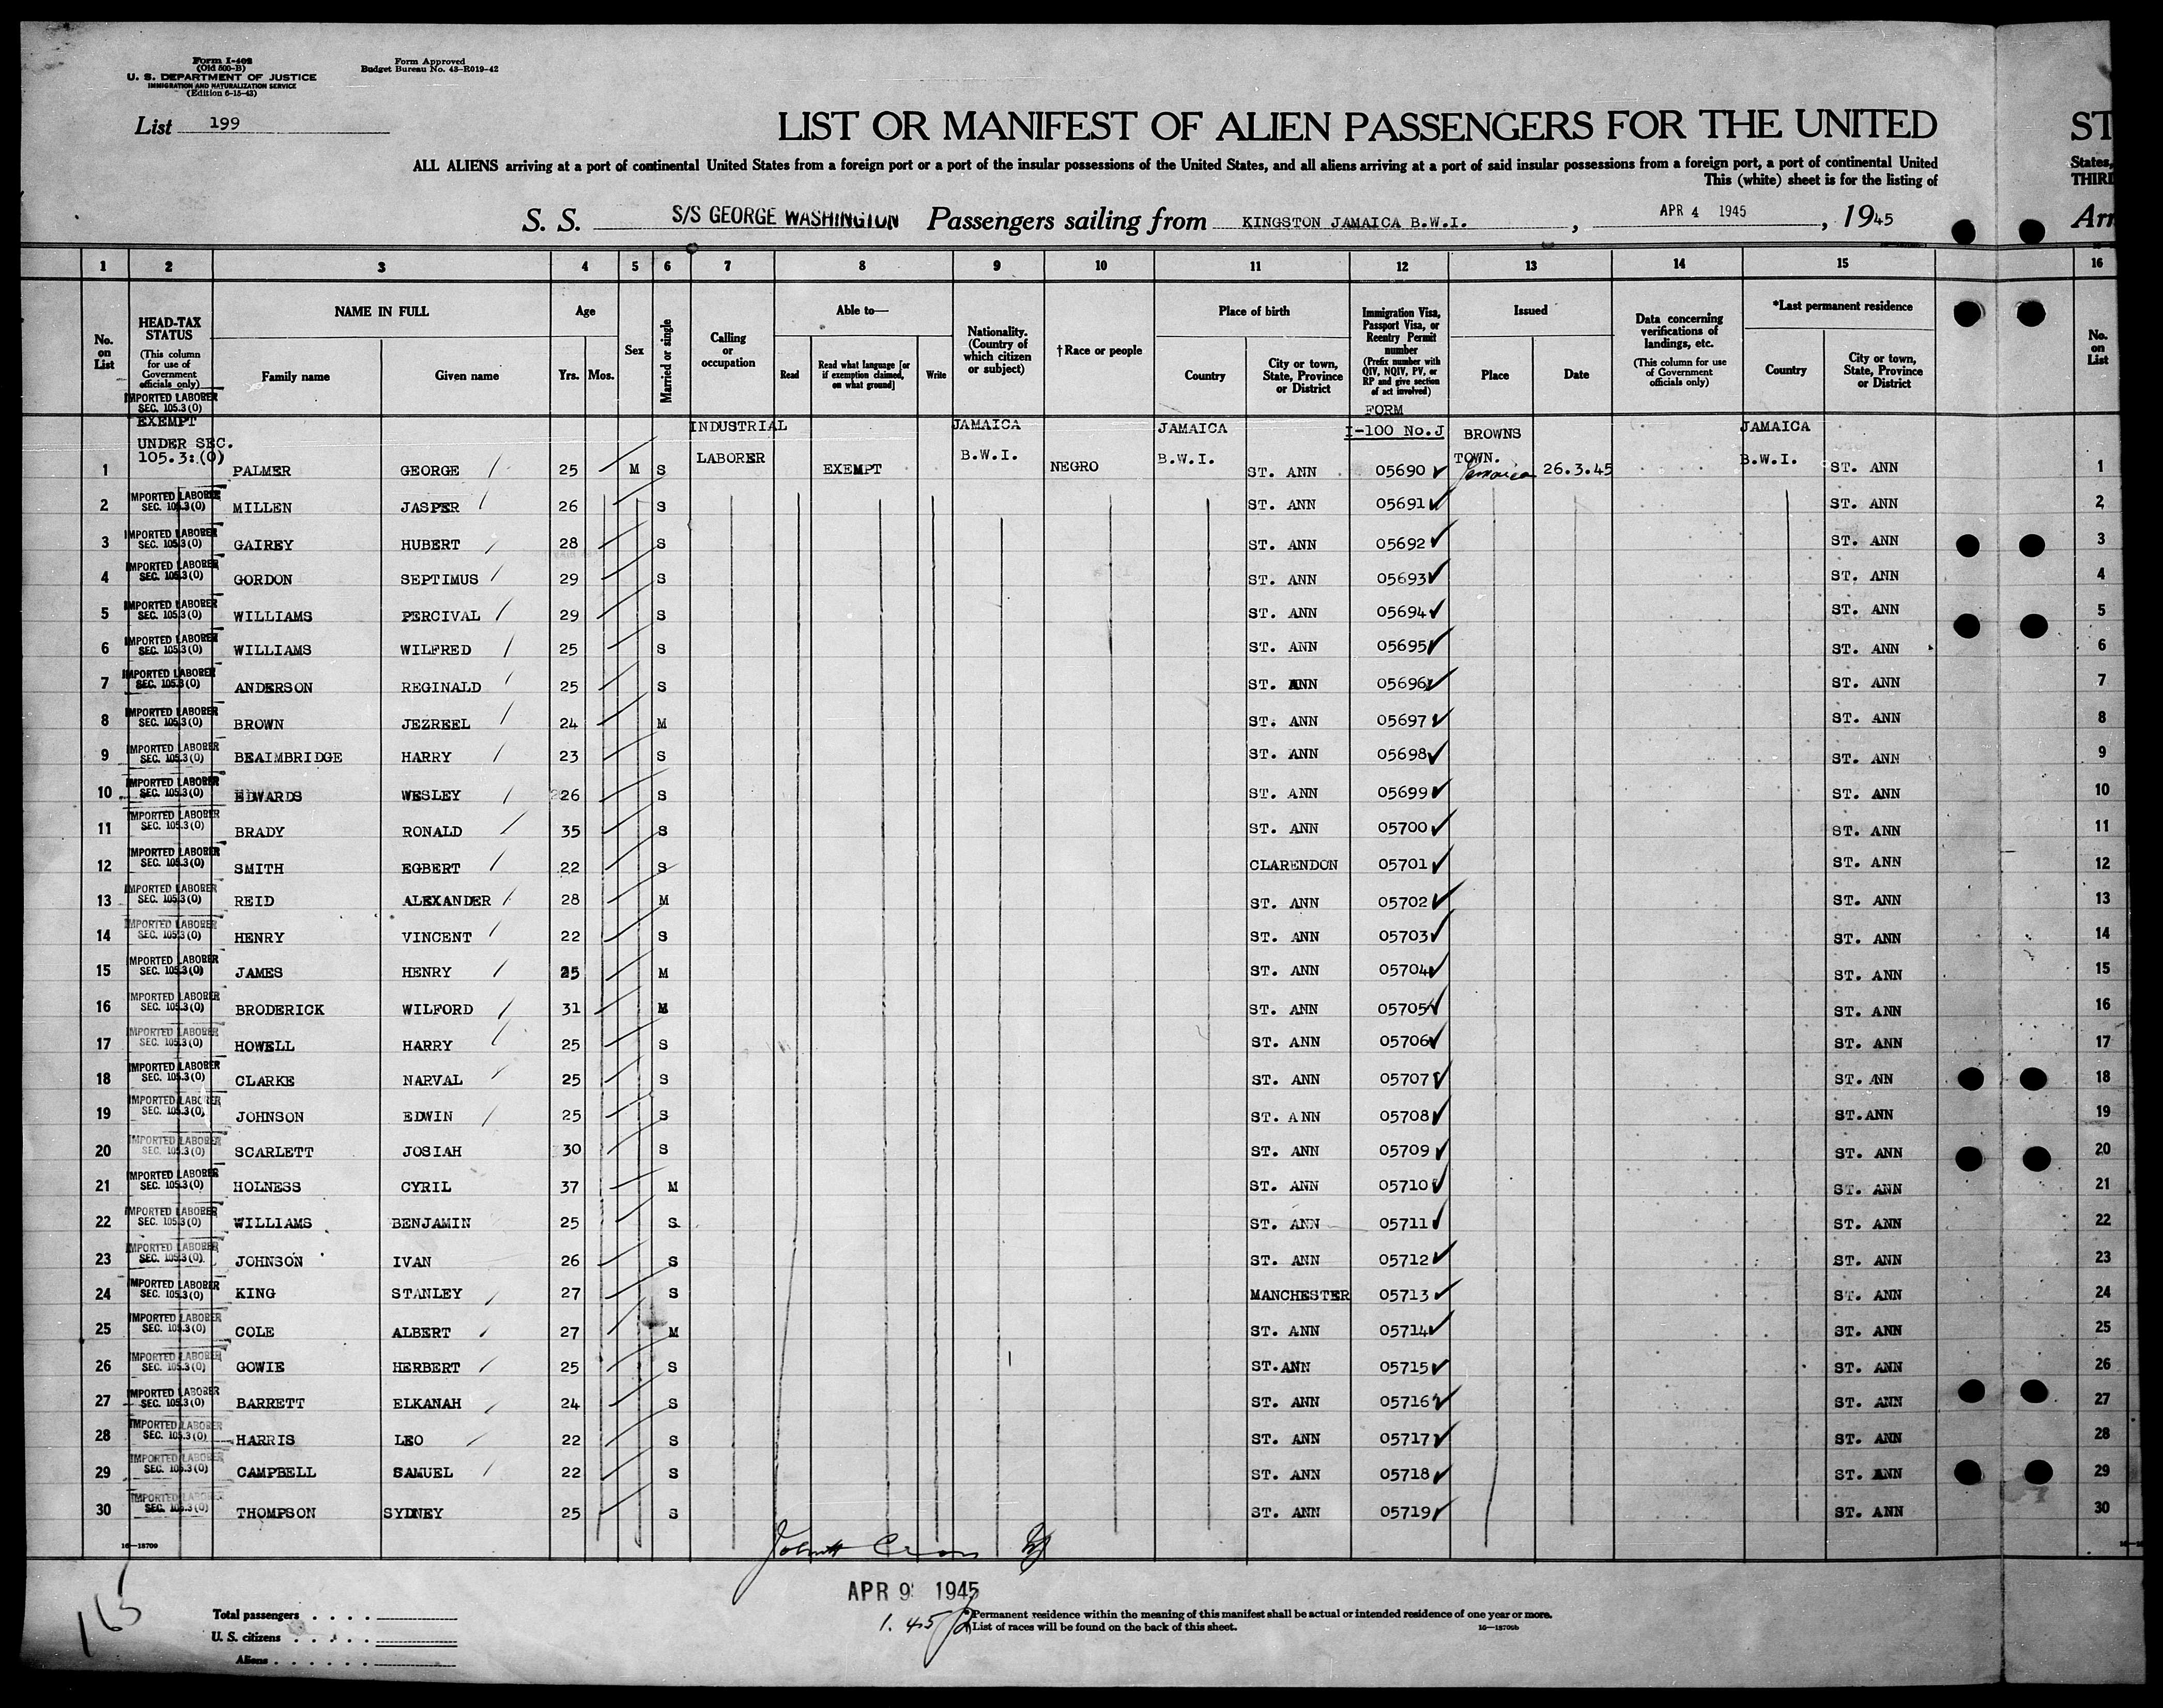 Form I-402
(Old 500-B)
U. S. DEPARTMENT OF JUSTICE
IMMIGRATION AND NATURALIZATION SERVICE
(Edition 6-15-43)
Form Approved
Budget Bureau No. 43-R019-42
List 199
LIST OR MANIFEST OF ALIEN PASSENGERS FOR THE UNITED ST
ALL ALIENS arriving at a port of continental United States from a foreign port or a port of the insular possessions of the United States, and all aliens arriving at a port of said insular possessions from a foreign port, a port of continental United States,
This (white) sheet is for the listing of THIRD
S. S. S/S GEORGE WASHINGTON Passengers sailing from KINGSTON JAMAICA B.W.I. , APR 4 1945 , 1945 Arr
1 2 3 4 5 6 7 8 9 10 11 12 13 14 15 16
No. on List
HEAD-TAX STATUS
(This column for use of Government officials only)
NAME IN FULL
Family name Given name
Age
Yrs. Mos.
Sex
Married or single
Calling or occupation
Able to—
Read Read what language [or if exemption claimed, on what ground] Write
Nationality. (Country of which citizen or subject)
†Race or people
Place of birth
Country City or town, State, Province or District
Immigration Visa, Passport Visa, or Reentry Permit number
(Prefix number with QIV, NQIV, PV, or RP and give section of act involved)
Issued
Place Date
Data concerning verifications of landings, etc.
(This column for use of Government officials only)
*Last permanent residence
Country City or town, State, Province or District
No. on List
IMPORTED LABORER
SEC. 105.3(0)
FORM
EXEMPT INDUSTRIAL JAMAICA JAMAICA I-100 No.J BROWNS JAMAICA
UNDER SEC.
105.3:(0) LABORER B.W.I. B.W.I. TOWN. B.W.I.
1 PALMER GEORGE 25 M S EXEMPT NEGRO ST. ANN 05690 Jamaica 26.3.45 ST. ANN 1
2 IMPORTED LABORER SEC. 105.3(0) MILLEN JASPER 26 S ST. ANN 05691 ST. ANN 2
3 IMPORTED LABORER SEC. 105.3(0) GAIREY HUBERT 28 S ST. ANN 05692 ST. ANN 3
4 IMPORTED LABORER SEC. 105.3(0) GORDON SEPTIMUS 29 S ST. ANN 05693 ST. ANN 4
5 IMPORTED LABORER SEC. 105.3(0) WILLIAMS PERCIVAL 29 S ST. ANN 05694 ST. ANN 5
6 IMPORTED LABORER SEC. 105.3(0) WILLIAMS WILFRED 25 S ST. ANN 05695 ST. ANN 6
7 IMPORTED LABORER SEC. 105.3(0) ANDERSON REGINALD 25 S ST. ANN 05696 ST. ANN 7
8 IMPORTED LABORER SEC. 105.3(0) BROWN JEZREEL 24 M ST. ANN 05697 ST. ANN 8
9 IMPORTED LABORER SEC. 105.3(0) BEAIMBRIDGE HARRY 23 S ST. ANN 05698 ST. ANN 9
10 IMPORTED LABORER SEC. 105.3(0) EDWARDS WESLEY 26 S ST. ANN 05699 ST. ANN 10
11 IMPORTED LABORER SEC. 105.3(0) BRADY RONALD 35 S ST. ANN 05700 ST. ANN 11
12 IMPORTED LABORER SEC. 105.3(0) SMITH EGBERT 22 S CLARENDON 05701 ST. ANN 12
13 IMPORTED LABORER SEC. 105.3(0) REID ALEXANDER 28 M ST. ANN 05702 ST. ANN 13
14 IMPORTED LABORER SEC. 105.3(0) HENRY VINCENT 22 S ST. ANN 05703 ST. ANN 14
15 IMPORTED LABORER SEC. 105.3(0) JAMES HENRY 25 M ST. ANN 05704 ST. ANN 15
16 IMPORTED LABORER SEC. 105.3(0) BRODERICK WILFORD 31 M ST. ANN 05705 ST. ANN 16
17 IMPORTED LABORER SEC. 105.3(0) HOWELL HARRY 25 S ST. ANN 05706 ST. ANN 17
18 IMPORTED LABORER SEC. 105.3(0) CLARKE NARVAL 25 S ST. ANN 05707 ST. ANN 18
19 IMPORTED LABORER SEC. 105.3(0) JOHNSON EDWIN 25 S ST. ANN 05708 ST.ANN 19
20 IMPORTED LABORER SEC. 105.3(0) SCARLETT JOSIAH 30 S ST. ANN 05709 ST. ANN 20
21 IMPORTED LABORER SEC. 105.3(0) HOLNESS CYRIL 37 M ST. ANN 05710 ST. ANN 21
22 IMPORTED LABORER SEC. 105.3(0) WILLIAMS BENJAMIN 25 S ST. ANN 05711 ST. ANN 22
23 IMPORTED LABORER SEC. 105.3(0) JOHNSON IVAN 26 S ST. ANN 05712 ST. ANN 23
24 IMPORTED LABORER SEC. 105.3(0) KING STANLEY 27 S MANCHESTER 05713 ST. ANN 24
25 IMPORTED LABORER SEC. 105.3(0) COLE ALBERT 27 M ST. ANN 05714 ST. ANN 25
26 IMPORTED LABORER SEC. 105.3(0) GOWIE HERBERT 25 S ST.ANN 05715 ST. ANN 26
27 IMPORTED LABORER SEC. 105.3(0) BARRETT ELKANAH 24 S ST. ANN 05716 ST. ANN 27
28 IMPORTED LABORER SEC. 105.3(0) HARRIS LEO 22 S ST. ANN 05717 ST. ANN 28
29 IMPORTED LABORER SEC. 105.3(0) CAMPBELL SAMUEL 22 S ST. ANN 05718 ST. ANN 29
30 IMPORTED LABORER SEC. 105.3(0) THOMPSON SYDNEY 25 S ST. ANN 05719 ST. ANN 30
16—18709
APR 9 1945
165
1.45
Total passengers . . . .
U. S. citizens . . . . .
Aliens . . . . . .
*Permanent residence within the meaning of this manifest shall be actual or intended residence of one year or more.
List of races will be found on the back of this sheet.
16—18709b